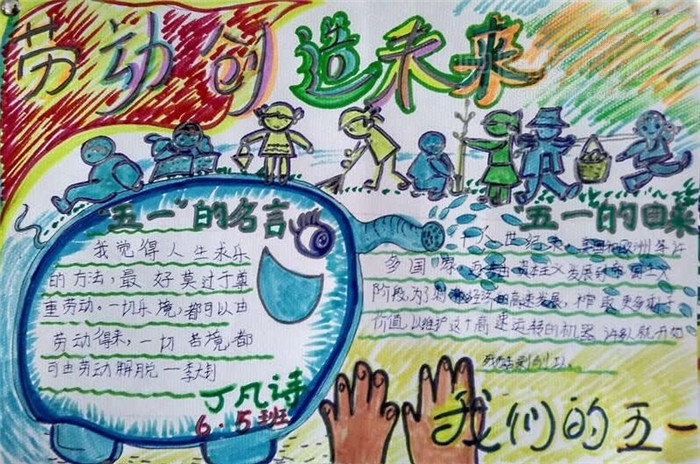 劳动创造未来
"五一"的名言
我觉得人生求乐
的方法，最好莫过于尊
重劳动。一切乐境，都可以由
劳动得来，一切苦境，都
可由劳动解脱 一李大钊
丁凡诗
6.5班
五一的由来
十九世纪末，美国和欧洲等许
多国家，
发展到
阶段，为了
经济的高速发展，榨取更多
价值，以维护这个高速运转的机器
我们的五一